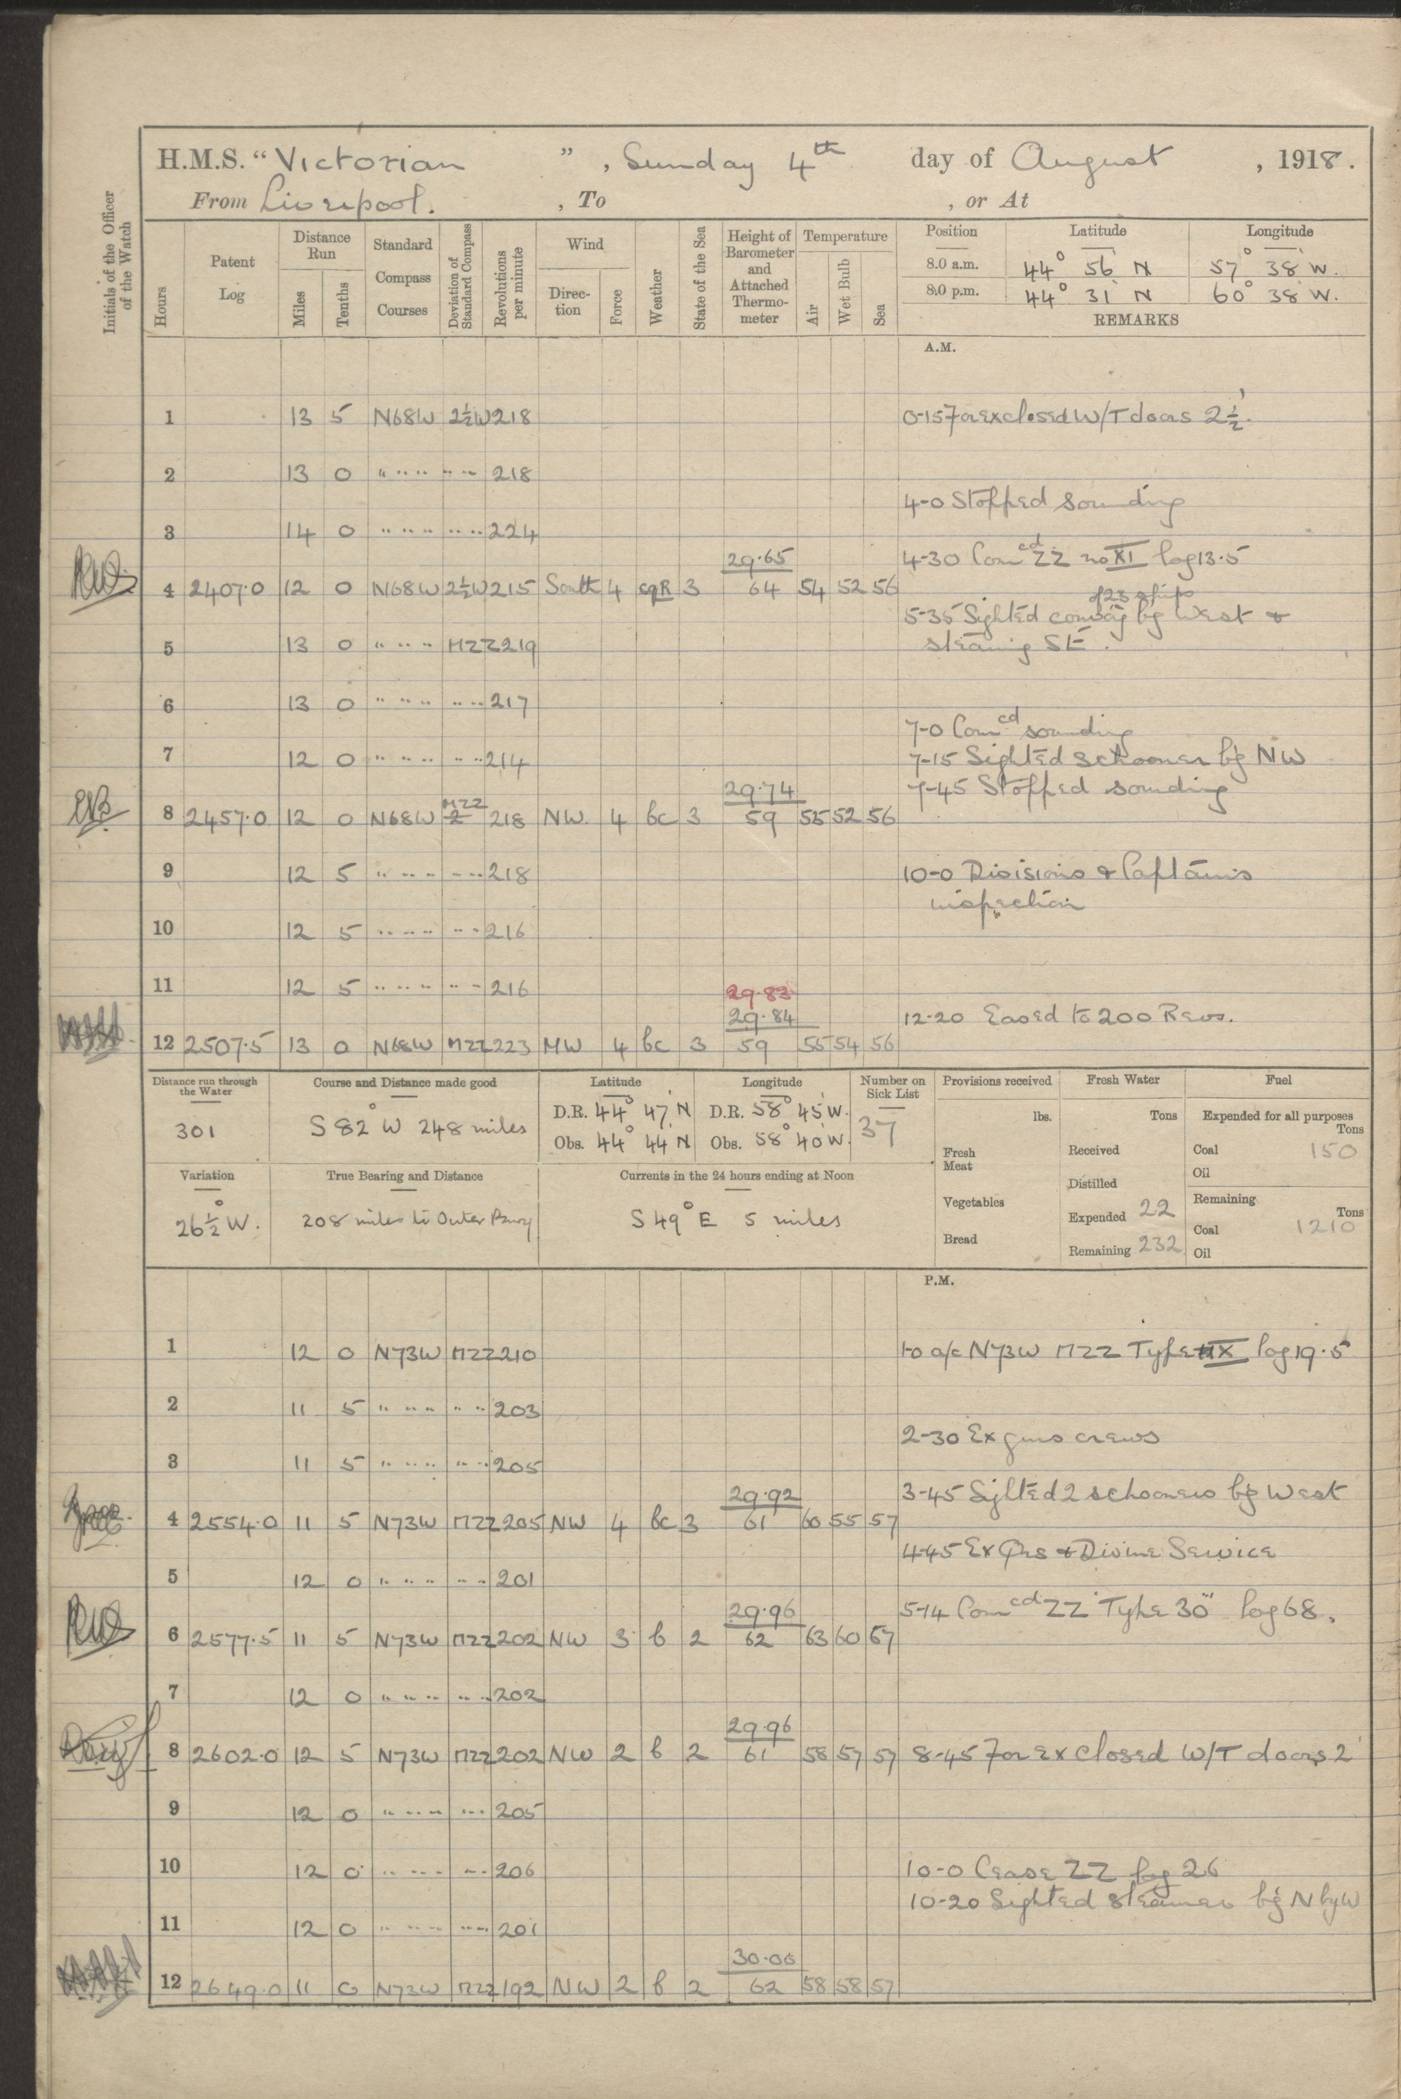 H.M.S. "Victorian", Sunday 4th day of August, 1918.
From Liverpool. , To , or At
Initials of the Officer of the Watch
Hours
Patent Log
Distance Run
Miles
Tenths
Standard Compass Courses
Deviation of Standard Compass
Revolutions per minute
Wind
Direction
Force
Weather
State of the Sea
Height of Barometer and Attached Thermometer
Temperature
Air
Wet Bulb
Sea
Position Latitude Longitude
8.0 a.m. 44° 56' N 57° 38' W.
8.0 p.m. 44° 31' N 60° 38' W.
REMARKS
A.M.
1 13 5 N68W 2½W 218 0-15 For ex closed W/T doors 2½'.
2 13 0 " " " " " " 218
4-0 Stopped sounding
3 14 0 " " " " " " 224
29.65 4-30 Comcd ZZ no XI log 13.5
4 2407.0 12 0 N68W 2½W 215 South 4 cqR 3 64 54 52 56
of 23 ships
5-35 Sighted convoy bg West &
5 13 0 " " " MZZ 219 steaming SE.
6 13 0 " " " " " 217
7-0 Comcd sounding
7 12 0 " " " " " 214 7-15 Sighted schooner bg NW
29.74 7-45 Stopped sounding
8 2457.0 12 0 N68W MZZ 218 NW. 4 bc 3 59 55 52 56
9 12 5 " " " " " 218 10-0 Divisions & Captains
inspection
10 12 5 " " " " " 216
11 12 5 " " " " " 216
29.83
29.84 12-20 Eased to 200 Revs.
12 2507.5 13 0 N68W MZZ 223 NW 4 bc 3 59 55 54 56
Distance run through the Water
301
Course and Distance made good
S 82° W 248 miles
Latitude
D.R. 44° 47' N
Obs. 44° 44' N
Longitude
D.R. 58° 45' W.
Obs. 58° 40' W.
Number on Sick List
37
Provisions received
lbs.
Fresh Meat
Vegetables
Bread
Fresh Water
Tons
Received
Distilled
Expended 22
Remaining 232
Fuel
Expended for all purposes
Tons
Coal 150
Oil
Remaining
Tons
Coal 1210
Oil
Variation
26½° W.
True Bearing and Distance
208 miles to Outer Buoy
Currents in the 24 hours ending at Noon
S 49° E 5 miles
P.M.
1 12 0 N73W MZZ 210 1-0 a/c N73W MZZ Type IX log 19.5
2 11 5 " " " " " 203
2-30 Ex guns crews
3 11 5 " " " " " 205
29.92 3-45 Sighted 2 schooners bg West
4 2554.0 11 5 N73W MZZ 205 NW 4 bc 3 61 60 55 57
4-45 Ex Qrs & Divine Service
5 12 0 " " " " " 201
29.96 5-14 Comcd ZZ "Type 30" log 68.
6 2577.5 11 5 N73W MZZ 202 NW 3 b 2 62 63 60 57
7 12 0 " " " " " 202
29.96
8 2602.0 12 5 N73W MZZ 202 NW 2 b 2 61 58 57 57 8-45 For Ex closed W/T doors 2'
9 12 0 " " " " " 205
10 12 0 " " " " " 206 10-0 Cease ZZ log 26
10-20 Sighted steamer bg N by W
11 12 0 " " " " " 201
30.00
12 2649.0 11 0 N73W MZZ 192 NW 2 b 2 62 58 58 57